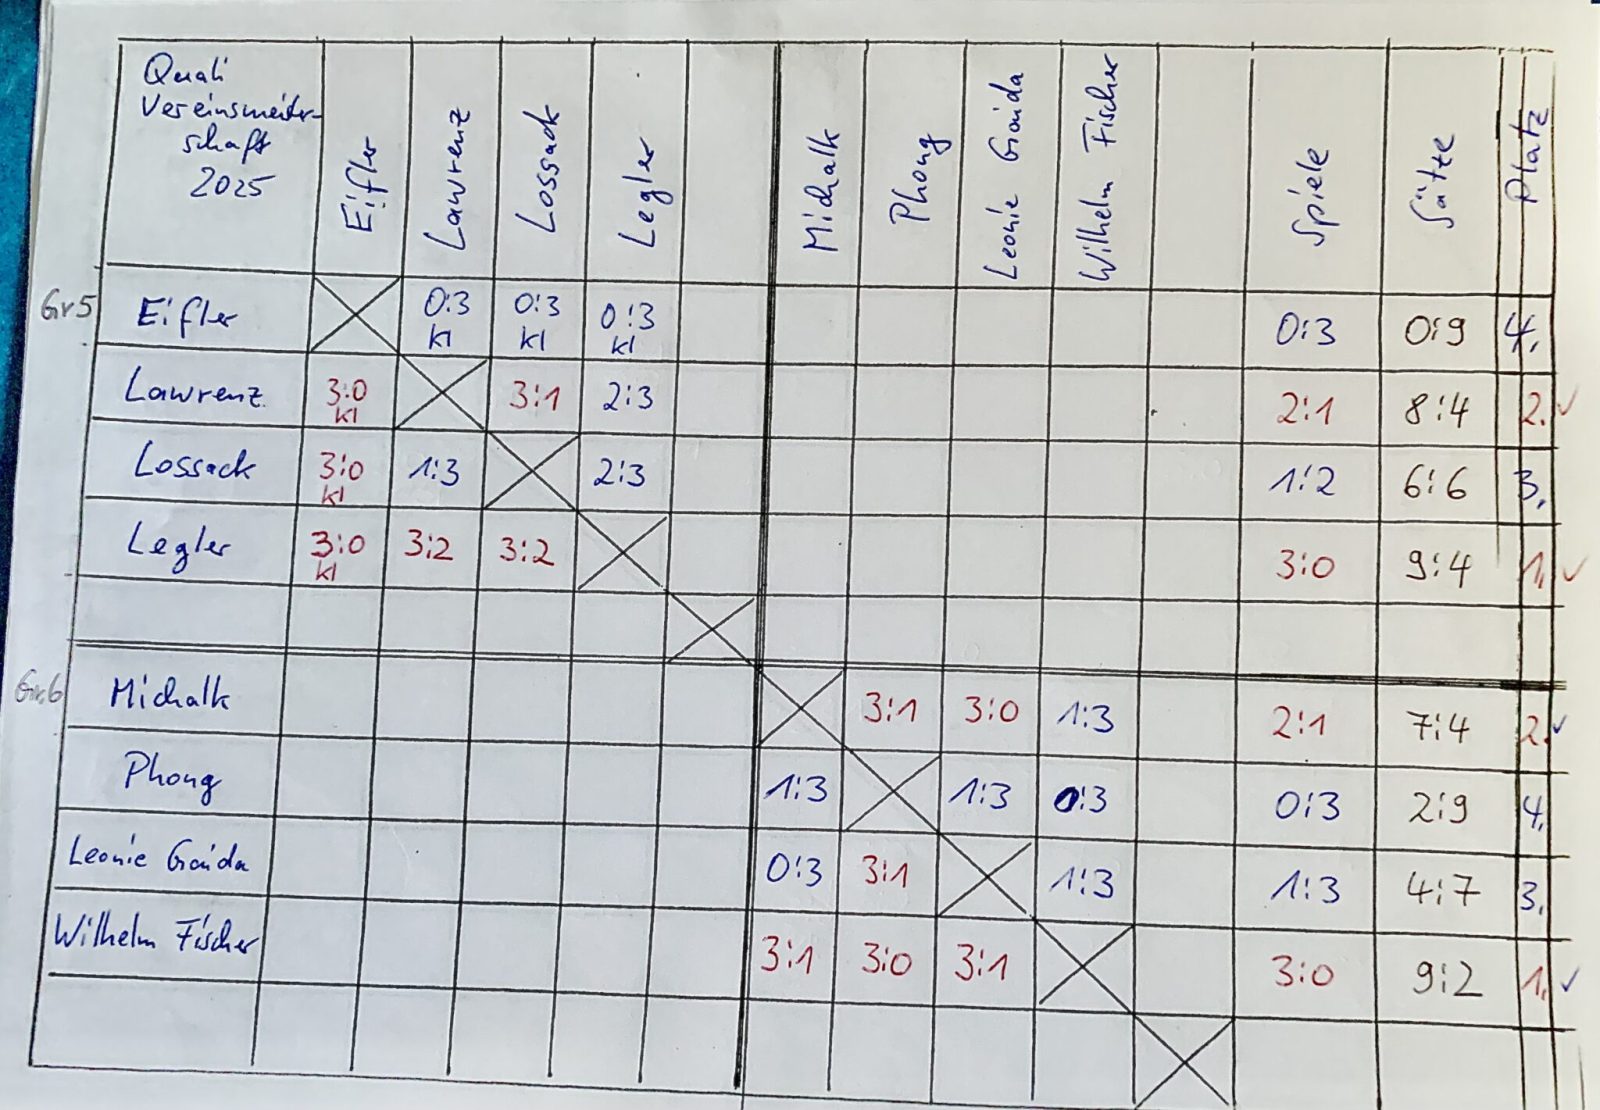 Quali
Vereinsmeister-
schaft
2025
Eifler
Lawrenz
Lossack
Legler
Michalk
Phong
Leonie Gaida
Wilhelm Fischer
Spiele
Sätze
Platz
Gr 5
Eifler 0:3 kl 0:3 kl 0:3 kl 0:3 0:9 4.
Lawrenz 3:0 kl 3:1 2:3 2:1 8:4 2. ✓
Lossack 3:0 kl 1:3 2:3 1:2 6:6 3.
Legler 3:0 kl 3:2 3:2 3:0 9:4 1. ✓
Gr.6
Michalk 3:1 3:0 1:3 2:1 7:4 2. ✓
Phong 1:3 1:3 0:3 0:3 2:9 4.
Leonie Gaida 0:3 3:1 1:3 1:3 4:7 3.
Wilhelm Fischer 3:1 3:0 3:1 3:0 9:2 1. ✓